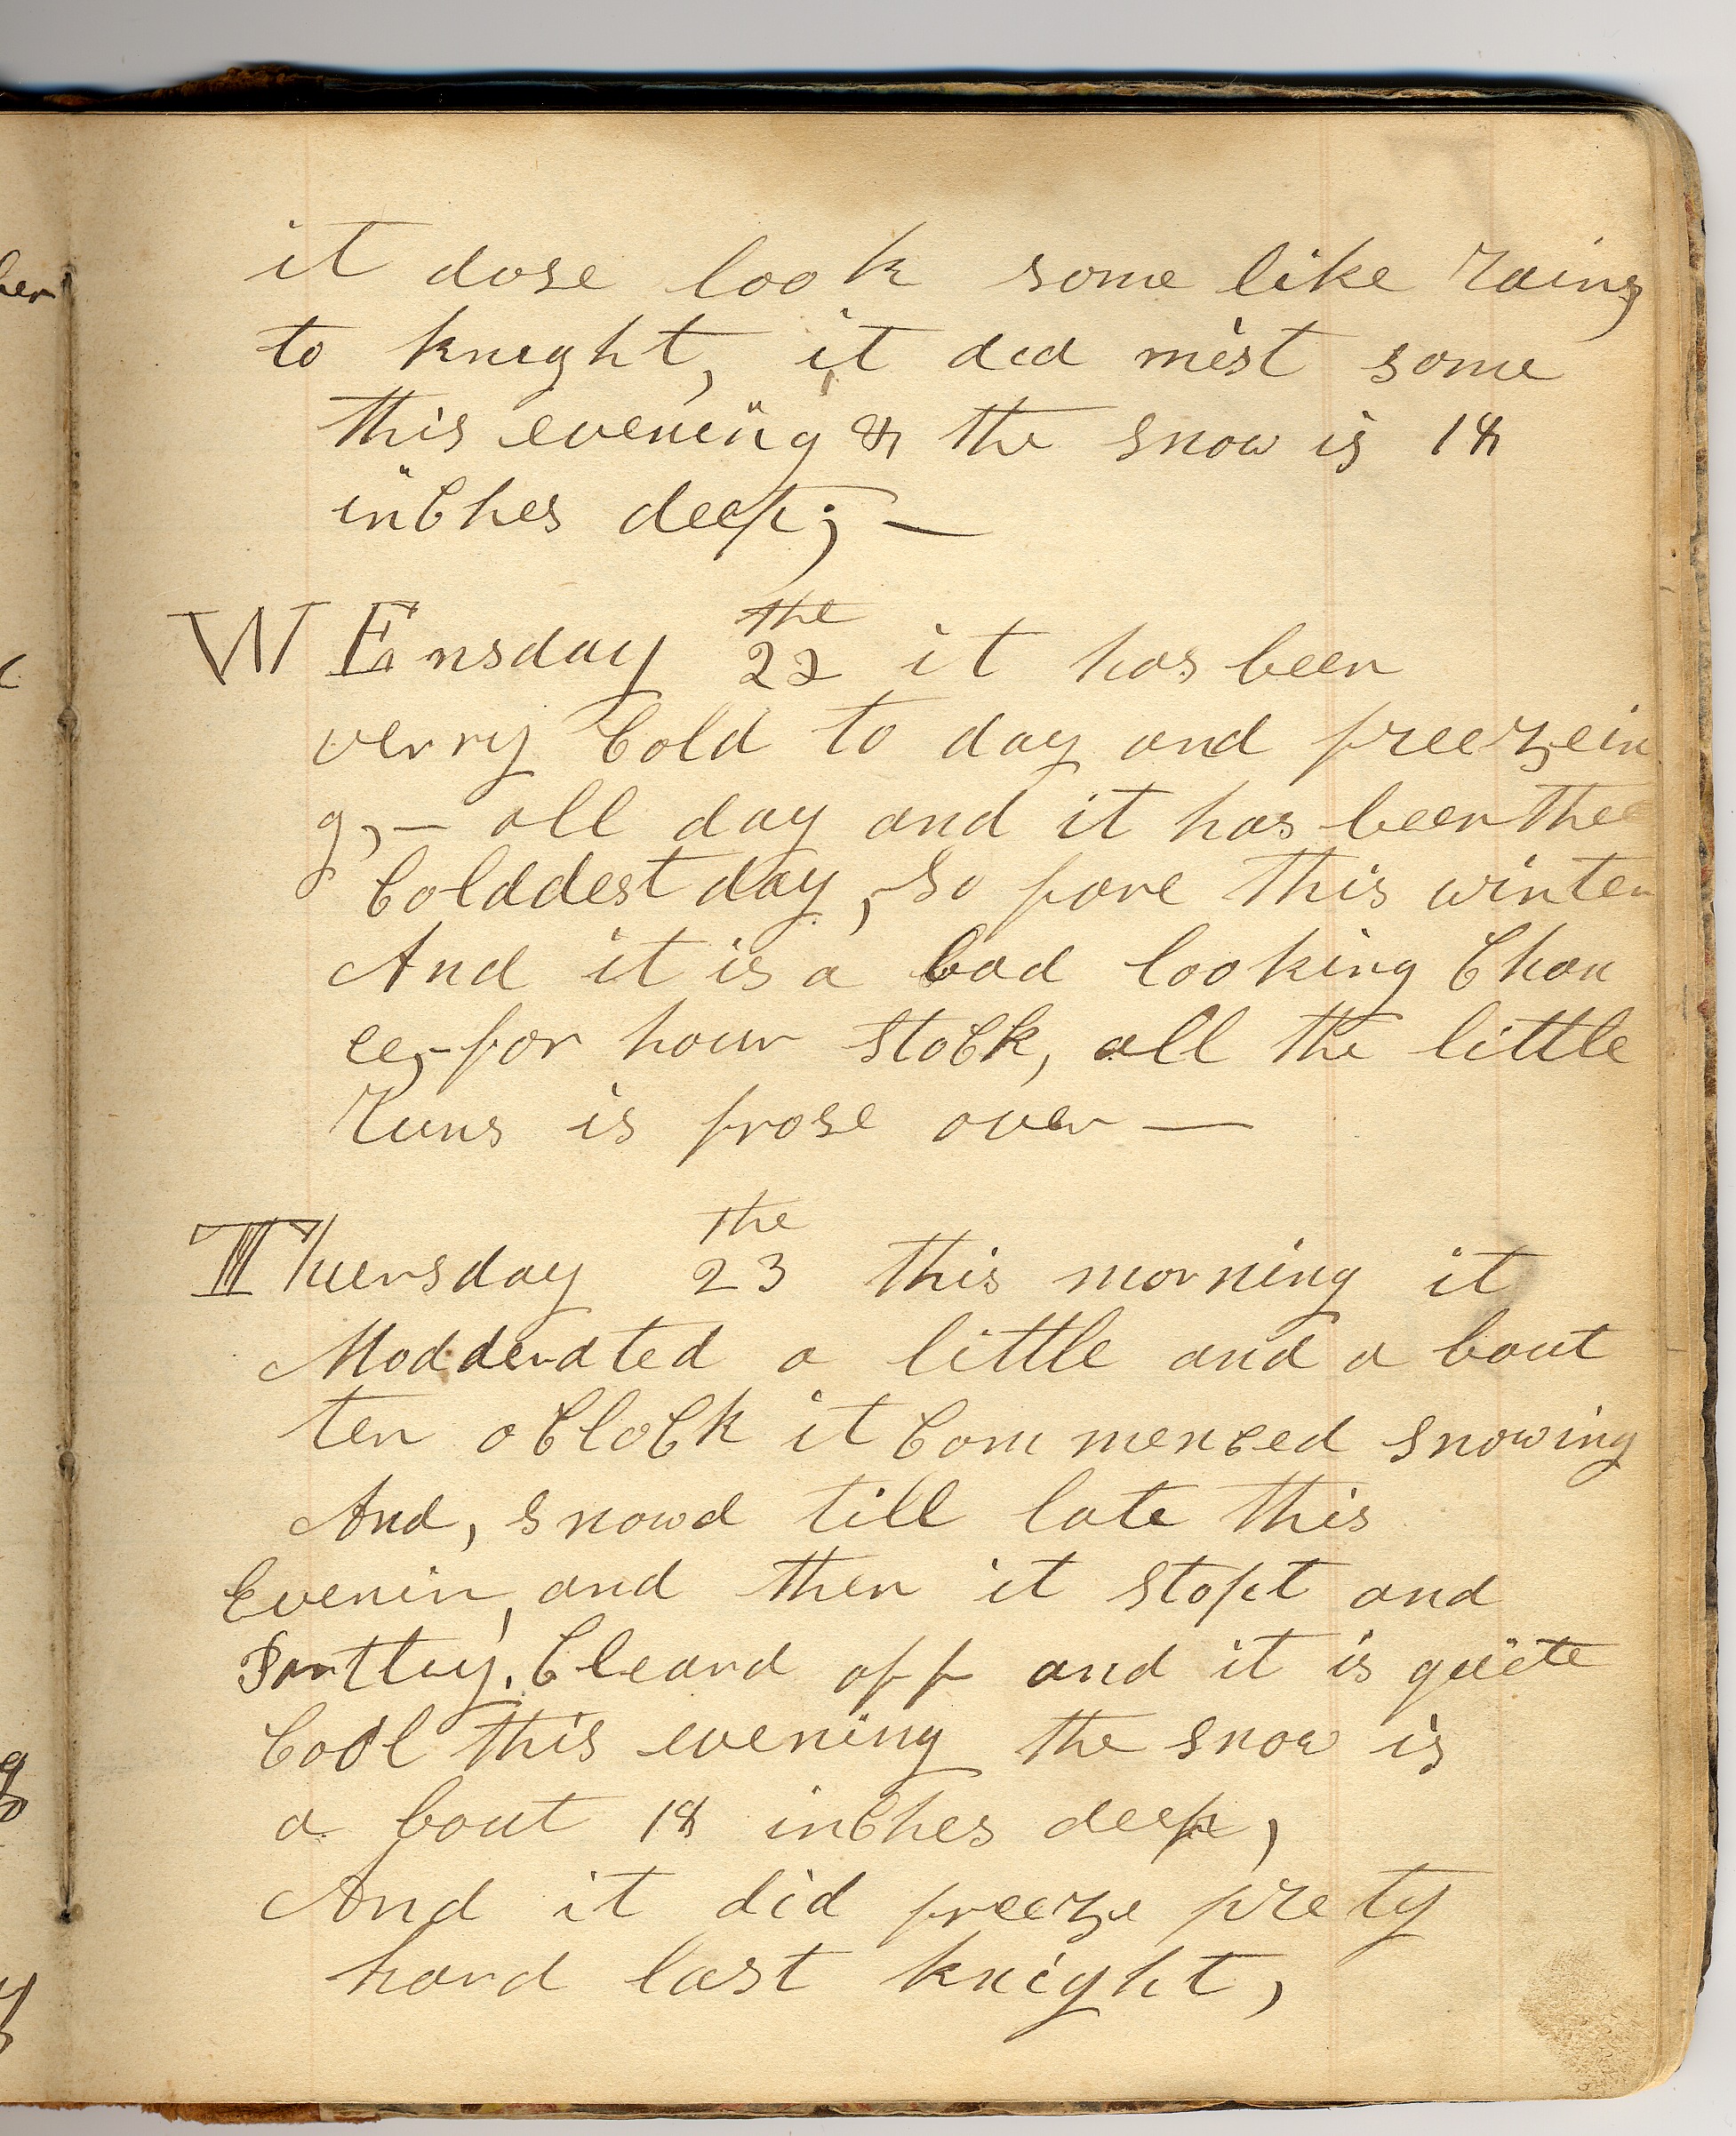 it dose look some like raing
to knight, it did mist some
this evening & the snow is 18
inches deep; —
WEnsday the 22 it has been
verry Cold to day and freezein
g,— all day and it has been thee
Colddest day, so fare this winter
And it is a bad looking Chan
ce,- for hour stoCk, all the little
Runs is frose over —
Thuersday the 23 this morning it
Modderated a little and a bout
ten oCloCk it Commenced snowing
And, snowd till late this
Evenin, and then it stopt and
Partley. Cleard off and it is quite
Cool this evening the snow is
a bout 18 inches deep,
And it did freeze prety
hard last knight,